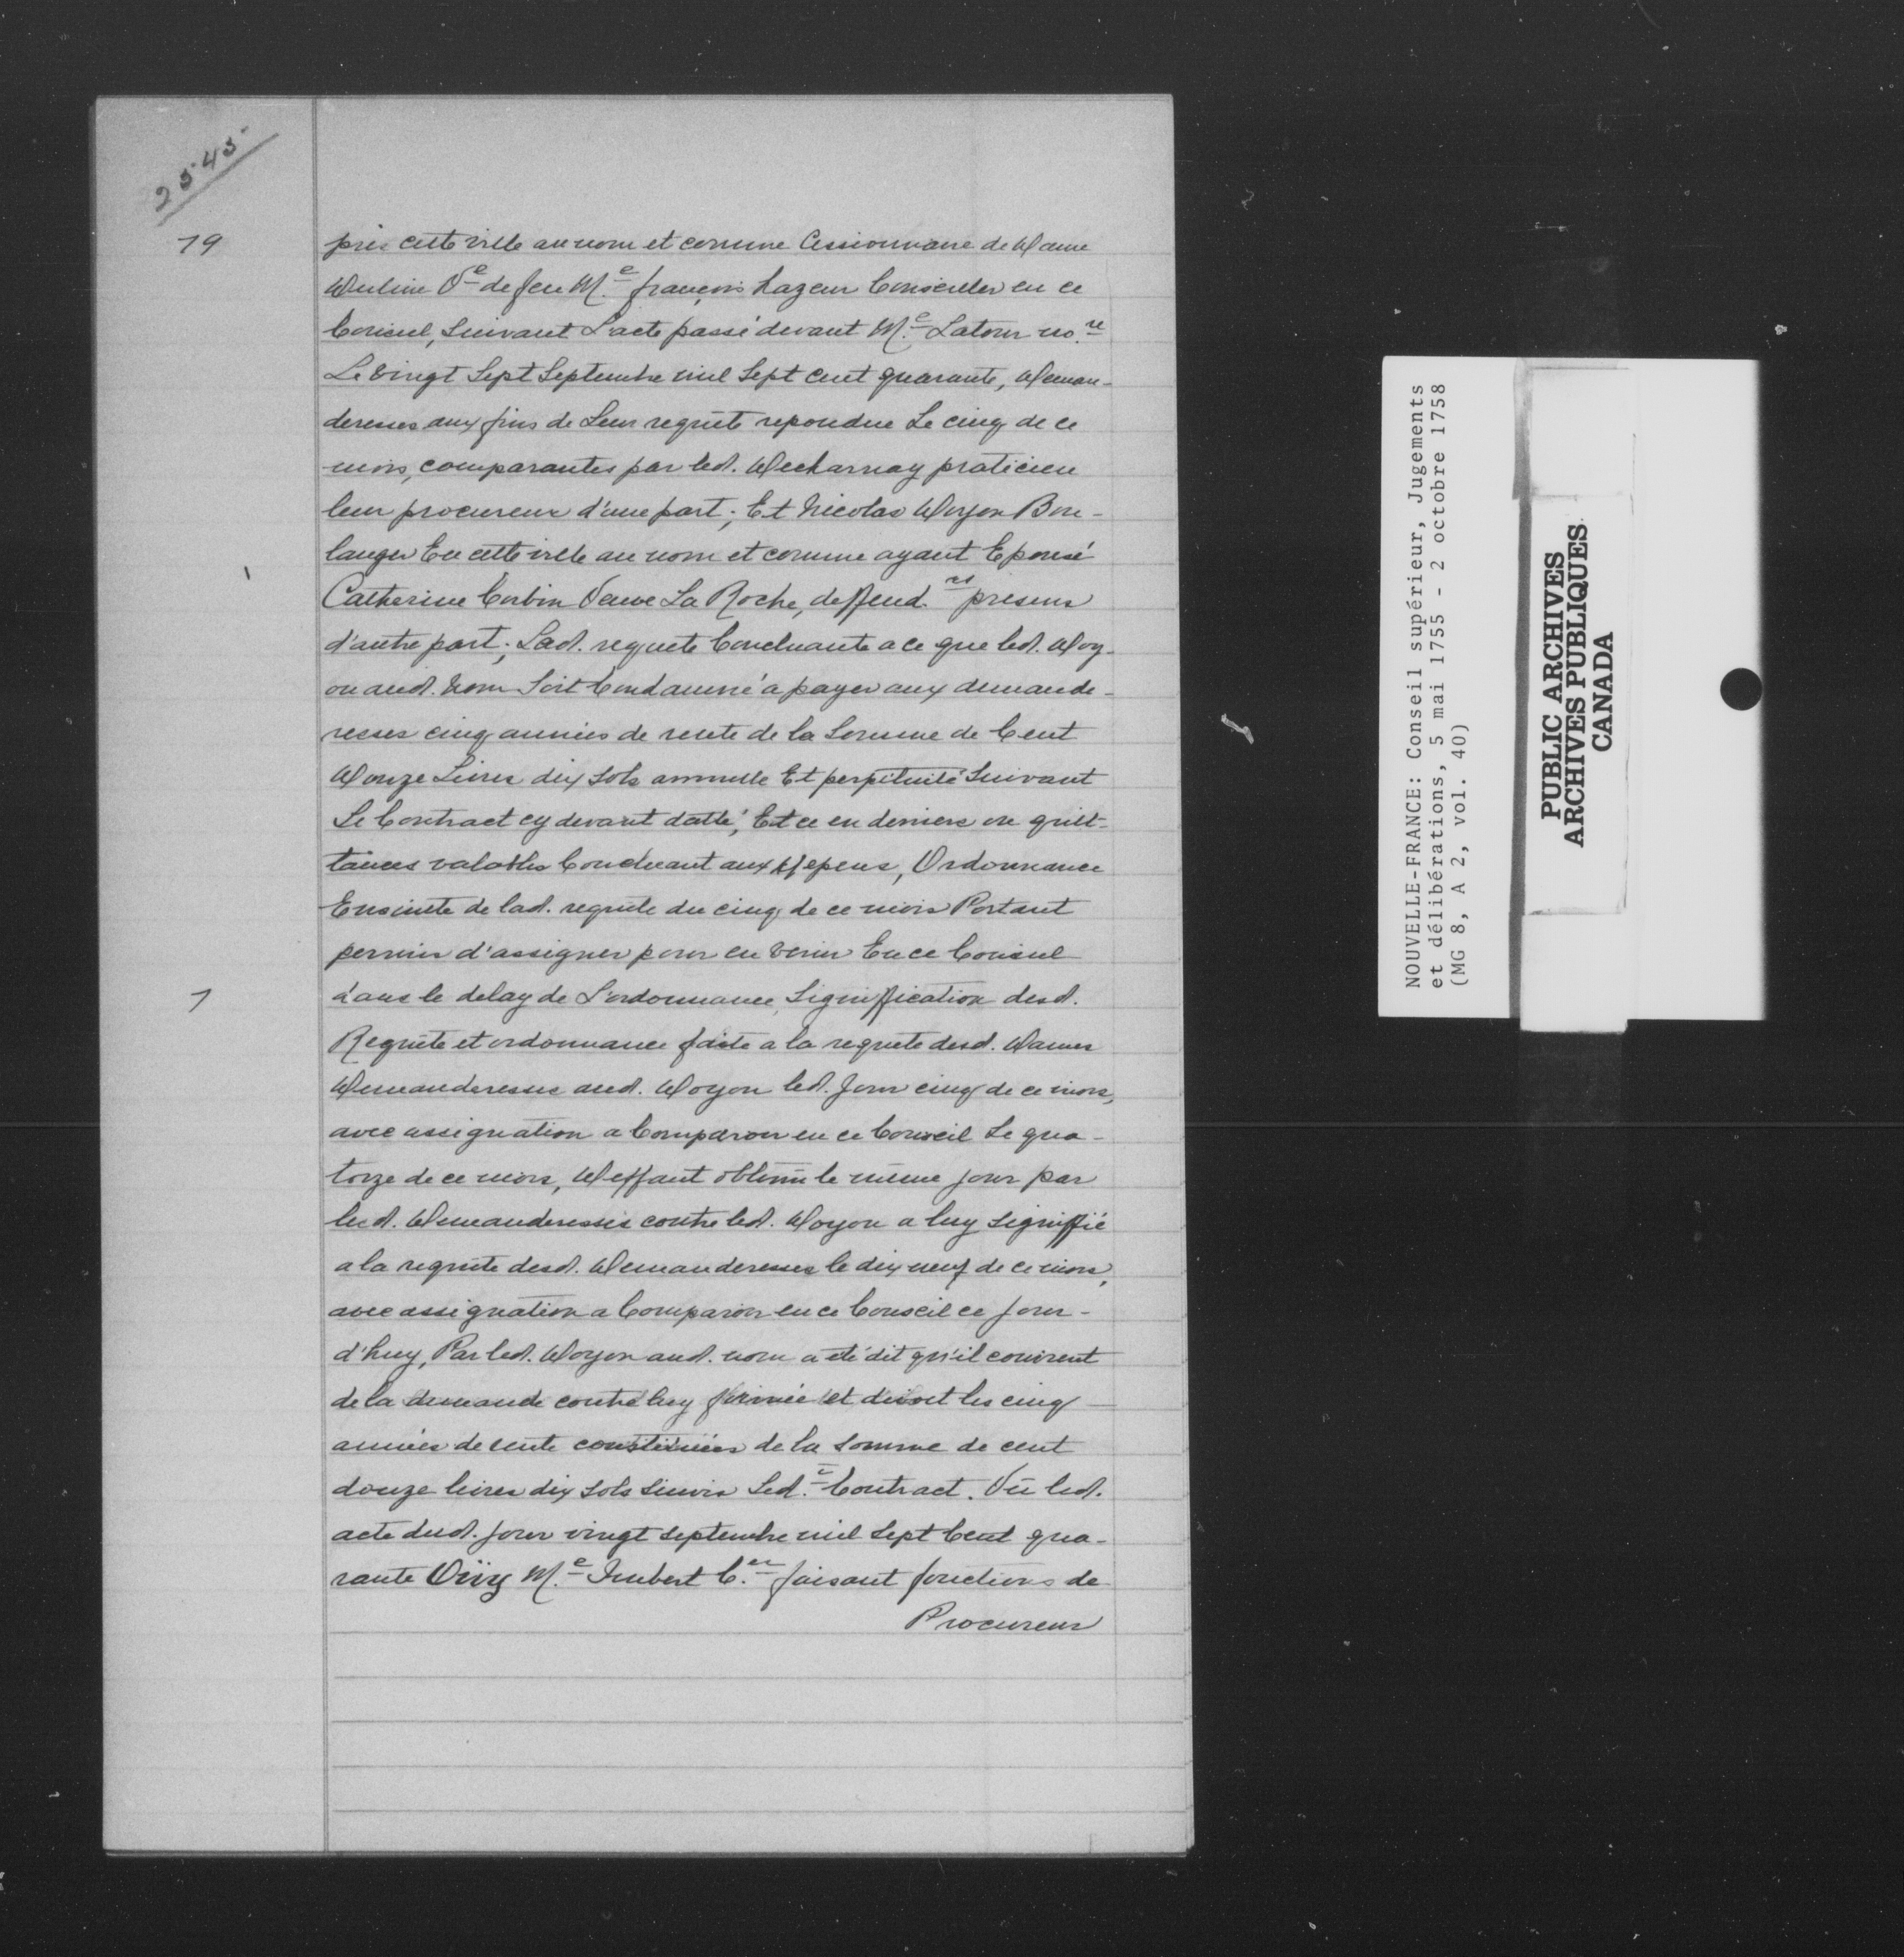 2545
19
près cette ville au nom et comme Cessionnaire de Dame
Ve de feu Me françois hazeur Conseiller en ce
Conseil, Suivant L'acte passé devant Me Latour nore
Le vingt Sept Septembre mil Sept cent quarante, Deman-
deresses aux fins de Leur requête repondue Le cinq de ce
mois, comparantes par led. Decharnay praticien
leur procureur d'une part; Et Nicolas Doyon Bou-
langer En cette ville au nom et comme ayant Epousé
Catherine Corbin Veuve La Roche, deffend.rs presens
d'autre part; Lad. requete Concluante a ce que led. Doy-
on aud. nom Soit Condamné a payer aux demande-
resses cinq années de rente de la Somme de Cent
Douze Livres dix Sols annuelle Et perpétuité Suivant
Le Contract cy devant datté, Et ce en deniers ou quit-
tances valables Concluant aux Depens, Ordonnance
Ensuite de lad. requête du cinq de ce mois Portant
permis d'assigner pour en venir En ce Conseil
1
dans le delay de L'ordonnance, Signiffication desd.
Requête et ordonnance faite a la requete desd. Dames
Demanderesses aud. Doyon led. Jour cinq de ce mois,
avec assignation a Comparoir en ce Conseil Le qua-
torze de ce mois, Deffaut obtenu le même jour par
lesd. Demanderesses contre led. Doyon a luy signiffié
a la requête desd. Demanderesses le dix neuf de ce mois,
avec assignation a Comparoir en ce Conseil ce jour-
d'huy, Par led. Doyon aud. nom a été dit qu'il convient
de la demande contre luy formée et devoit les cinq
années de rente constituées de la somme de cent
douze livres dix sols suivis Led. Contract. Vû led.
acte dud. jour vingt septembre mil Sept Cent qua-
rante Oüy Me Imbert C.er faisant fonctions de
Procureur
NOUVELLE-FRANCE: Conseil supérieur, Jugements
et délibérations, 5 mai 1755 - 2 octobre 1758
(MG 8, A 2, vol. 40)
PUBLIC ARCHIVES
ARCHIVES PUBLIQUES
CANADA